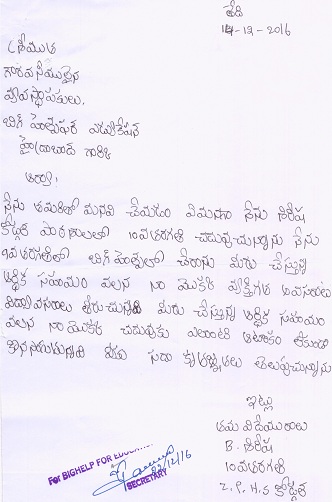 తేది
14-12-2016
శ్రీయుత
గౌరవనీయులైన
వ్యవస్థాపకులు,
బిగ్ హెల్ప్ ఫర్ ఎడ్యుకేషన్
హైద్రాబాద్ గారికి
ఆర్యా!
నేను తమరితో మనవి చేయడం ఏమనగా నేను శిరీష
పాఠశాలలో 10వ తరగతి చదువుచున్నాను నేను
9వ తరగతిలో బిగ్ హెల్ప్ లో చేరాను మీరు చేస్తున్న
ఆర్థిక సహాయం వలన నా యొక్క
తీరుచున్నవి మీరు చేస్తున్న ఆర్థిక సహాయం
వలన నా యొక్క చదువుకు ఎలాంటి ఆటంకం లేకుండా
కొనసాగుతున్నది మీకు సదా కృతజ్ఞతలు తెలుపుచున్నాను
ఇట్లు
తమ విధేయురాలు
B. శిరీష
10వ తరగతి
Z.P.H.S
For BIGHELP FOR EDUCATION
22/12/16
SECRETARY